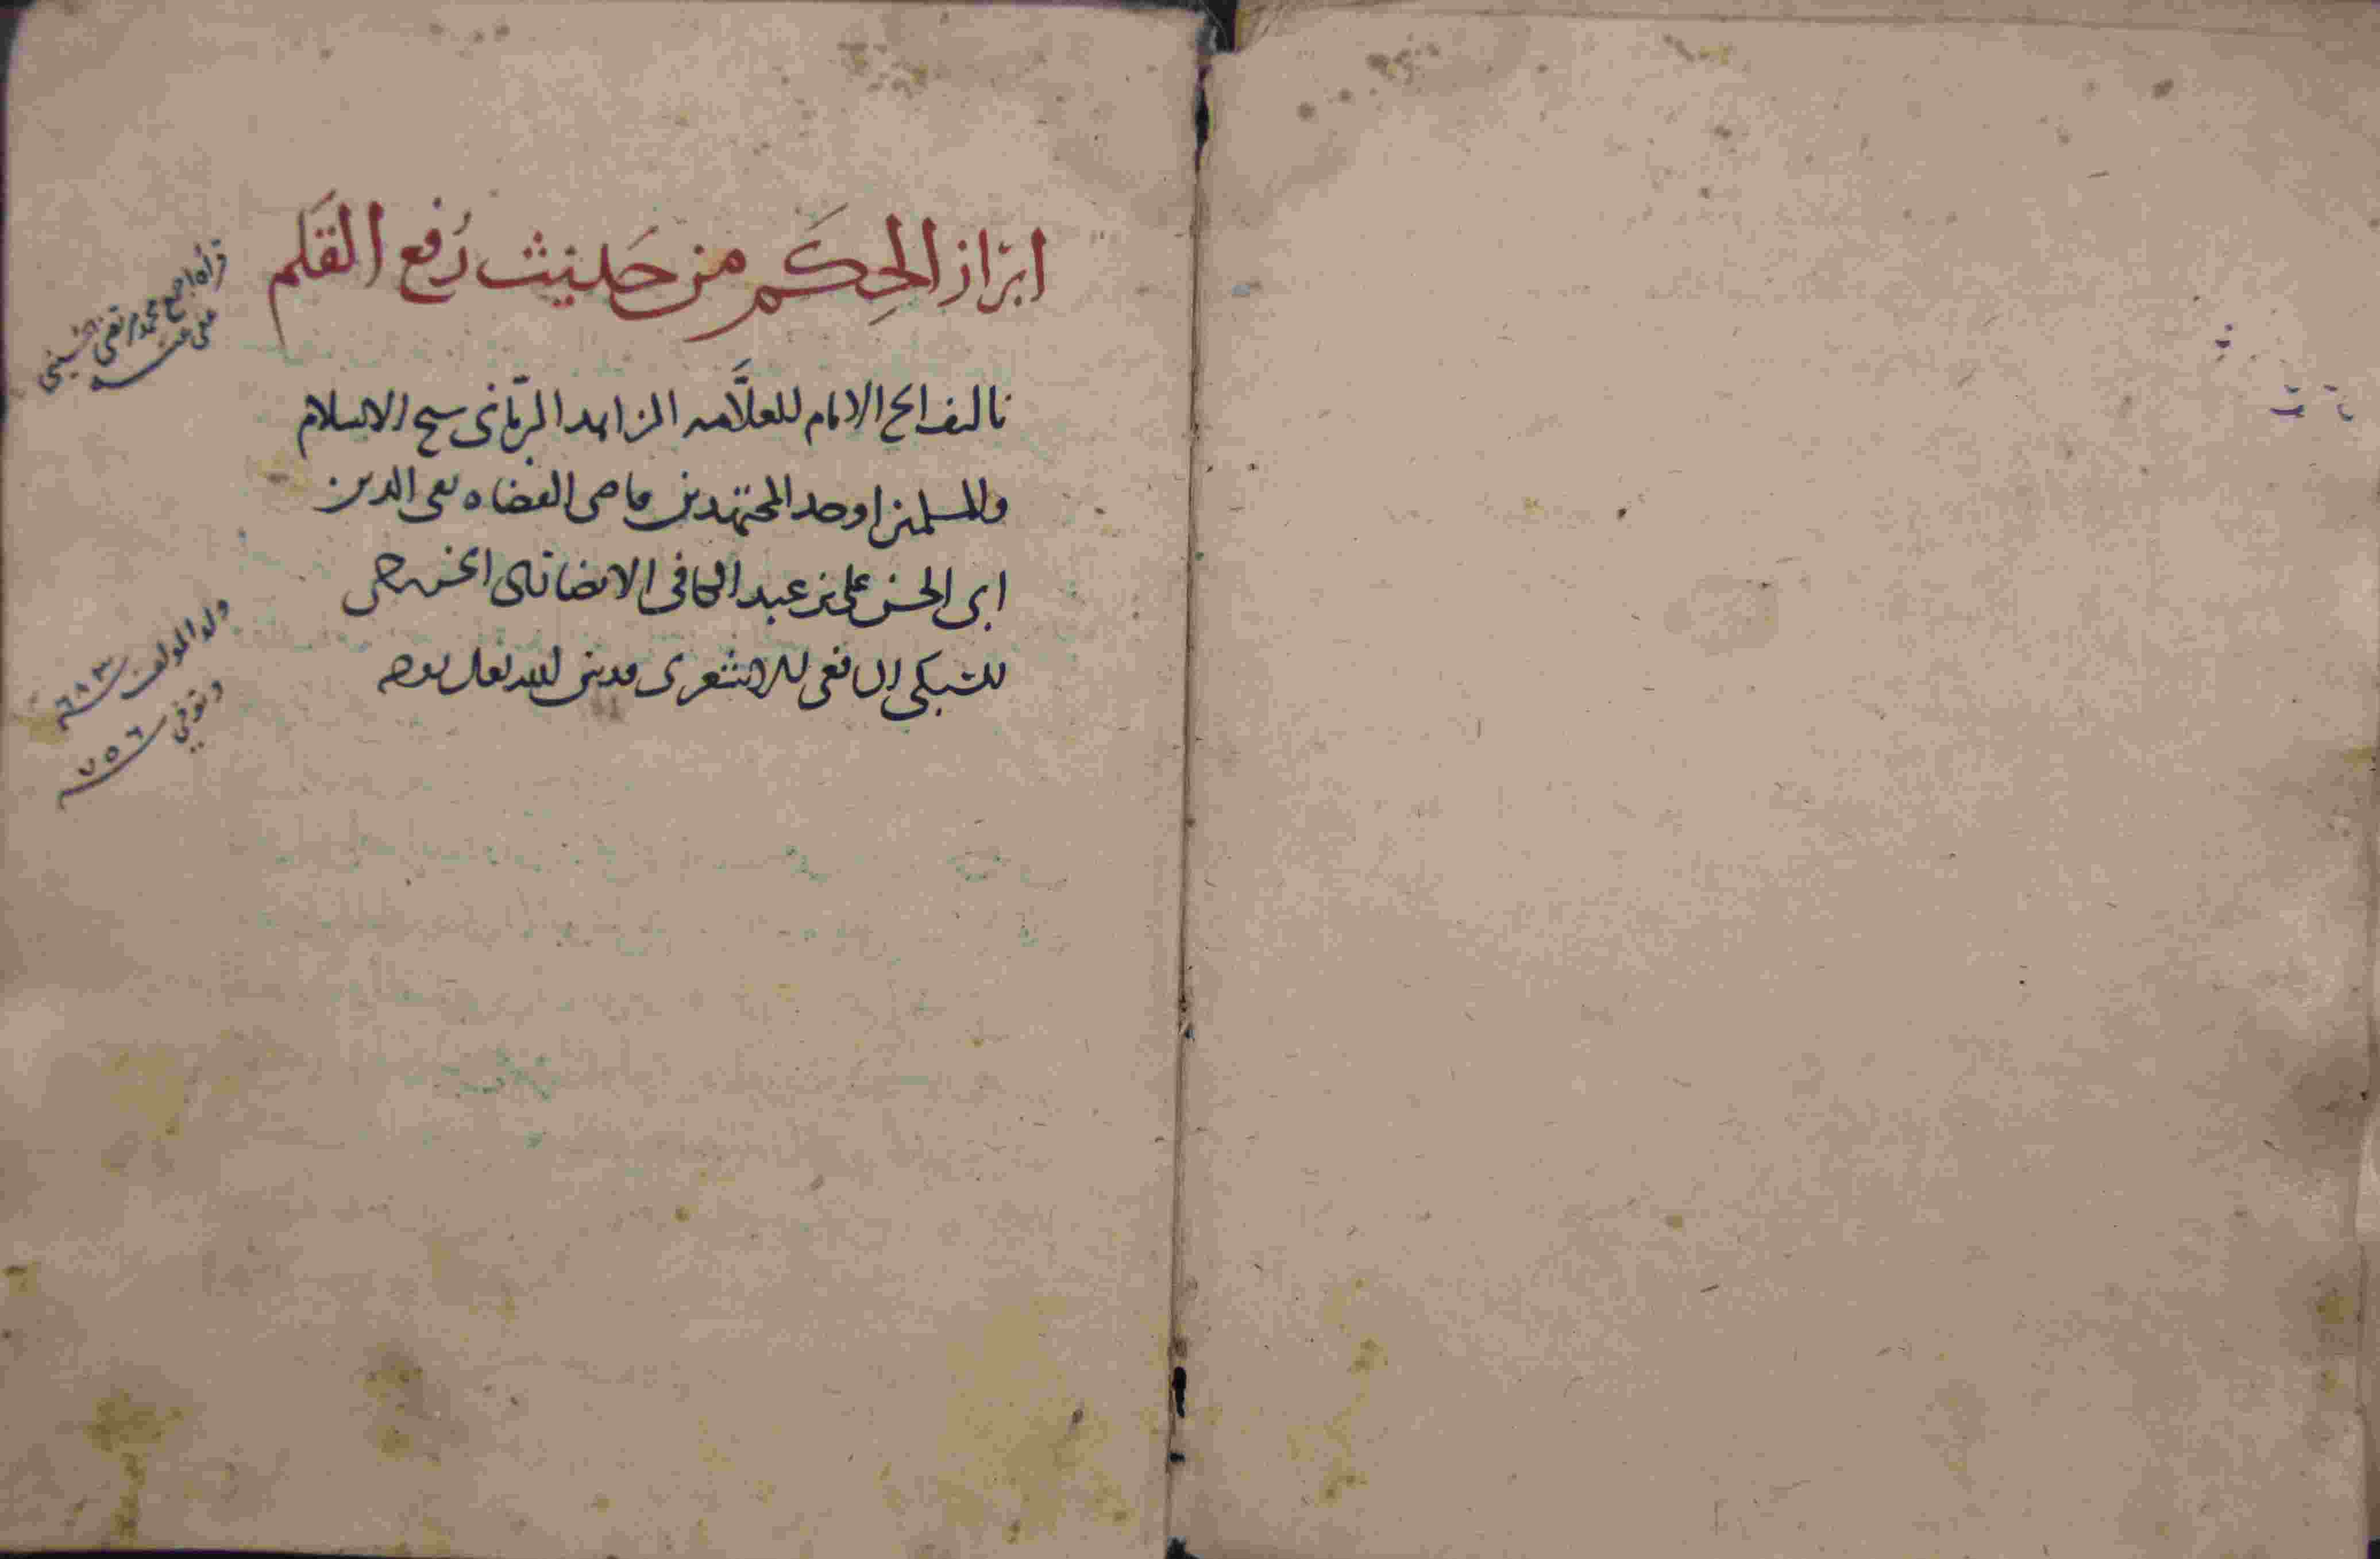 ابراز الحِكَم من حَديث رُفع القَلَم
تاليف الشيخ الامام العلاَّمه الزاهد الربّانى شيخ الاسلام
والمسلمين اوحد المجتهدين قاضى القضاه تقى الدين
ابى الحسن على بن عبد الكافى الانصارى الخزرجى
السبكى الشافعى الاشعرى قدس الله تعالى روحه
قرأه اجمع محمد مرتضى الحسيني
عفي عنه
ولد المولف سنة ٦٨٣
وتوفي سنة ٧٥٦